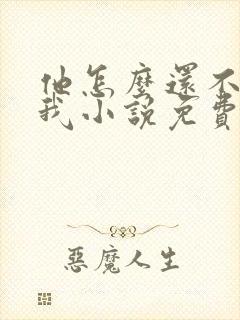 他怎麼還不
我小說免費
惡魔人生